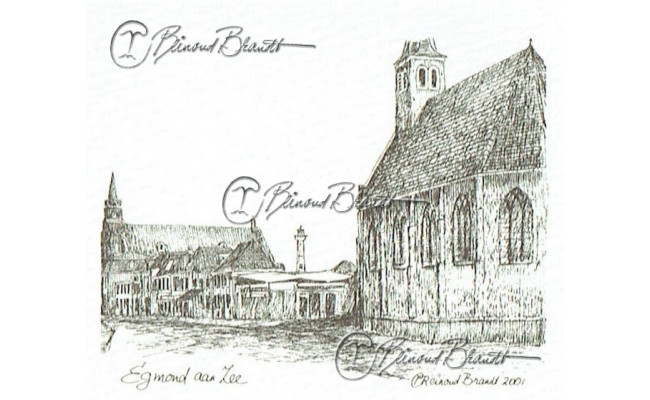 Reinoud Brandt
Reinoud Brandt
Reinoud Brandt
Egmond aan Zee
©Reinoud Brandt 2001